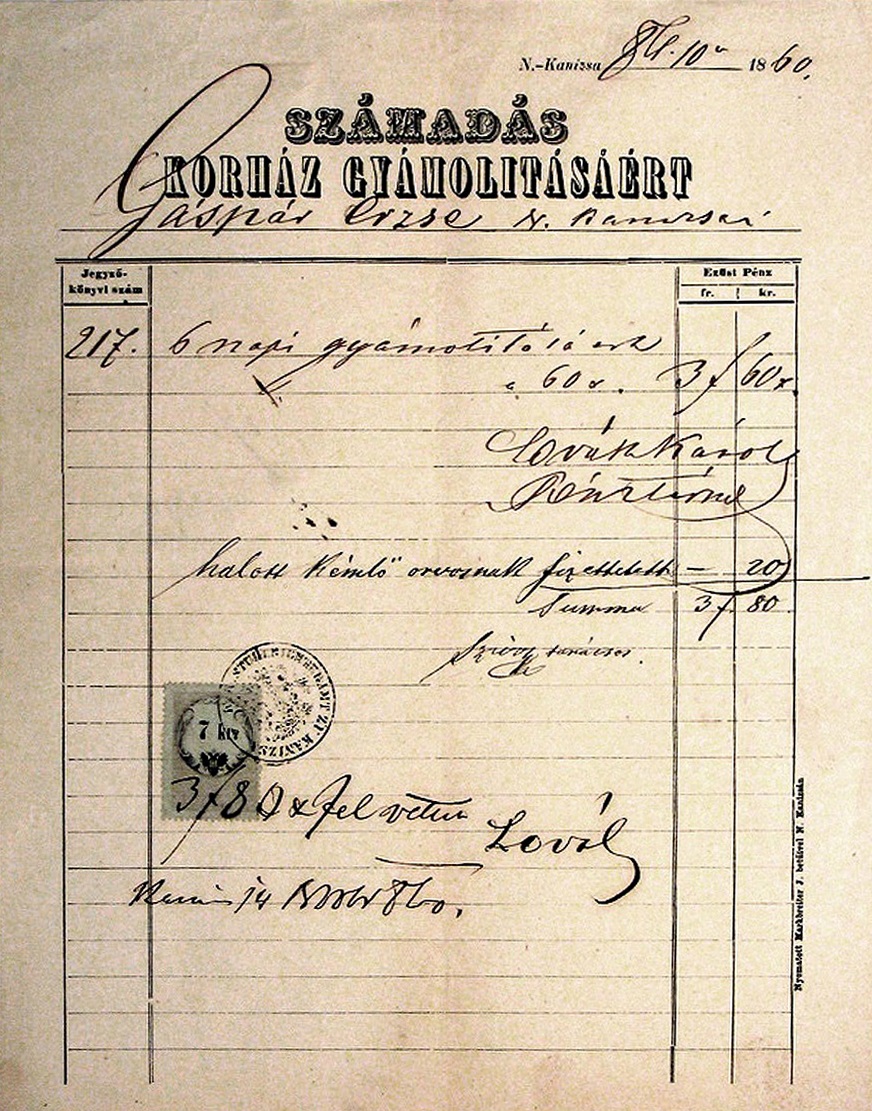 N.-Kanizsa 8br. 10n 1860.
SZÁMADÁS
KORHÁZ GYÁMOLITÁSÁÉRT
Gáspár Erzse N. Kanizsai
Jegyző-
könyvi szám
Ezüst Pénz
fr. kr.
217. 6 napi gyámolitásáért
a 60 x. 3 f 60 x
Károly
halott kémlő orvosnak fizettetett — 20
Summa 3 f 80
tanácsos.
STUHLRICHTERAMT ZU KANIZSA
7 kr
3 f 80 x felvettem
Lovák
14 860.
Nyomatott Markbreiter J. betüivel N. Kanizsán